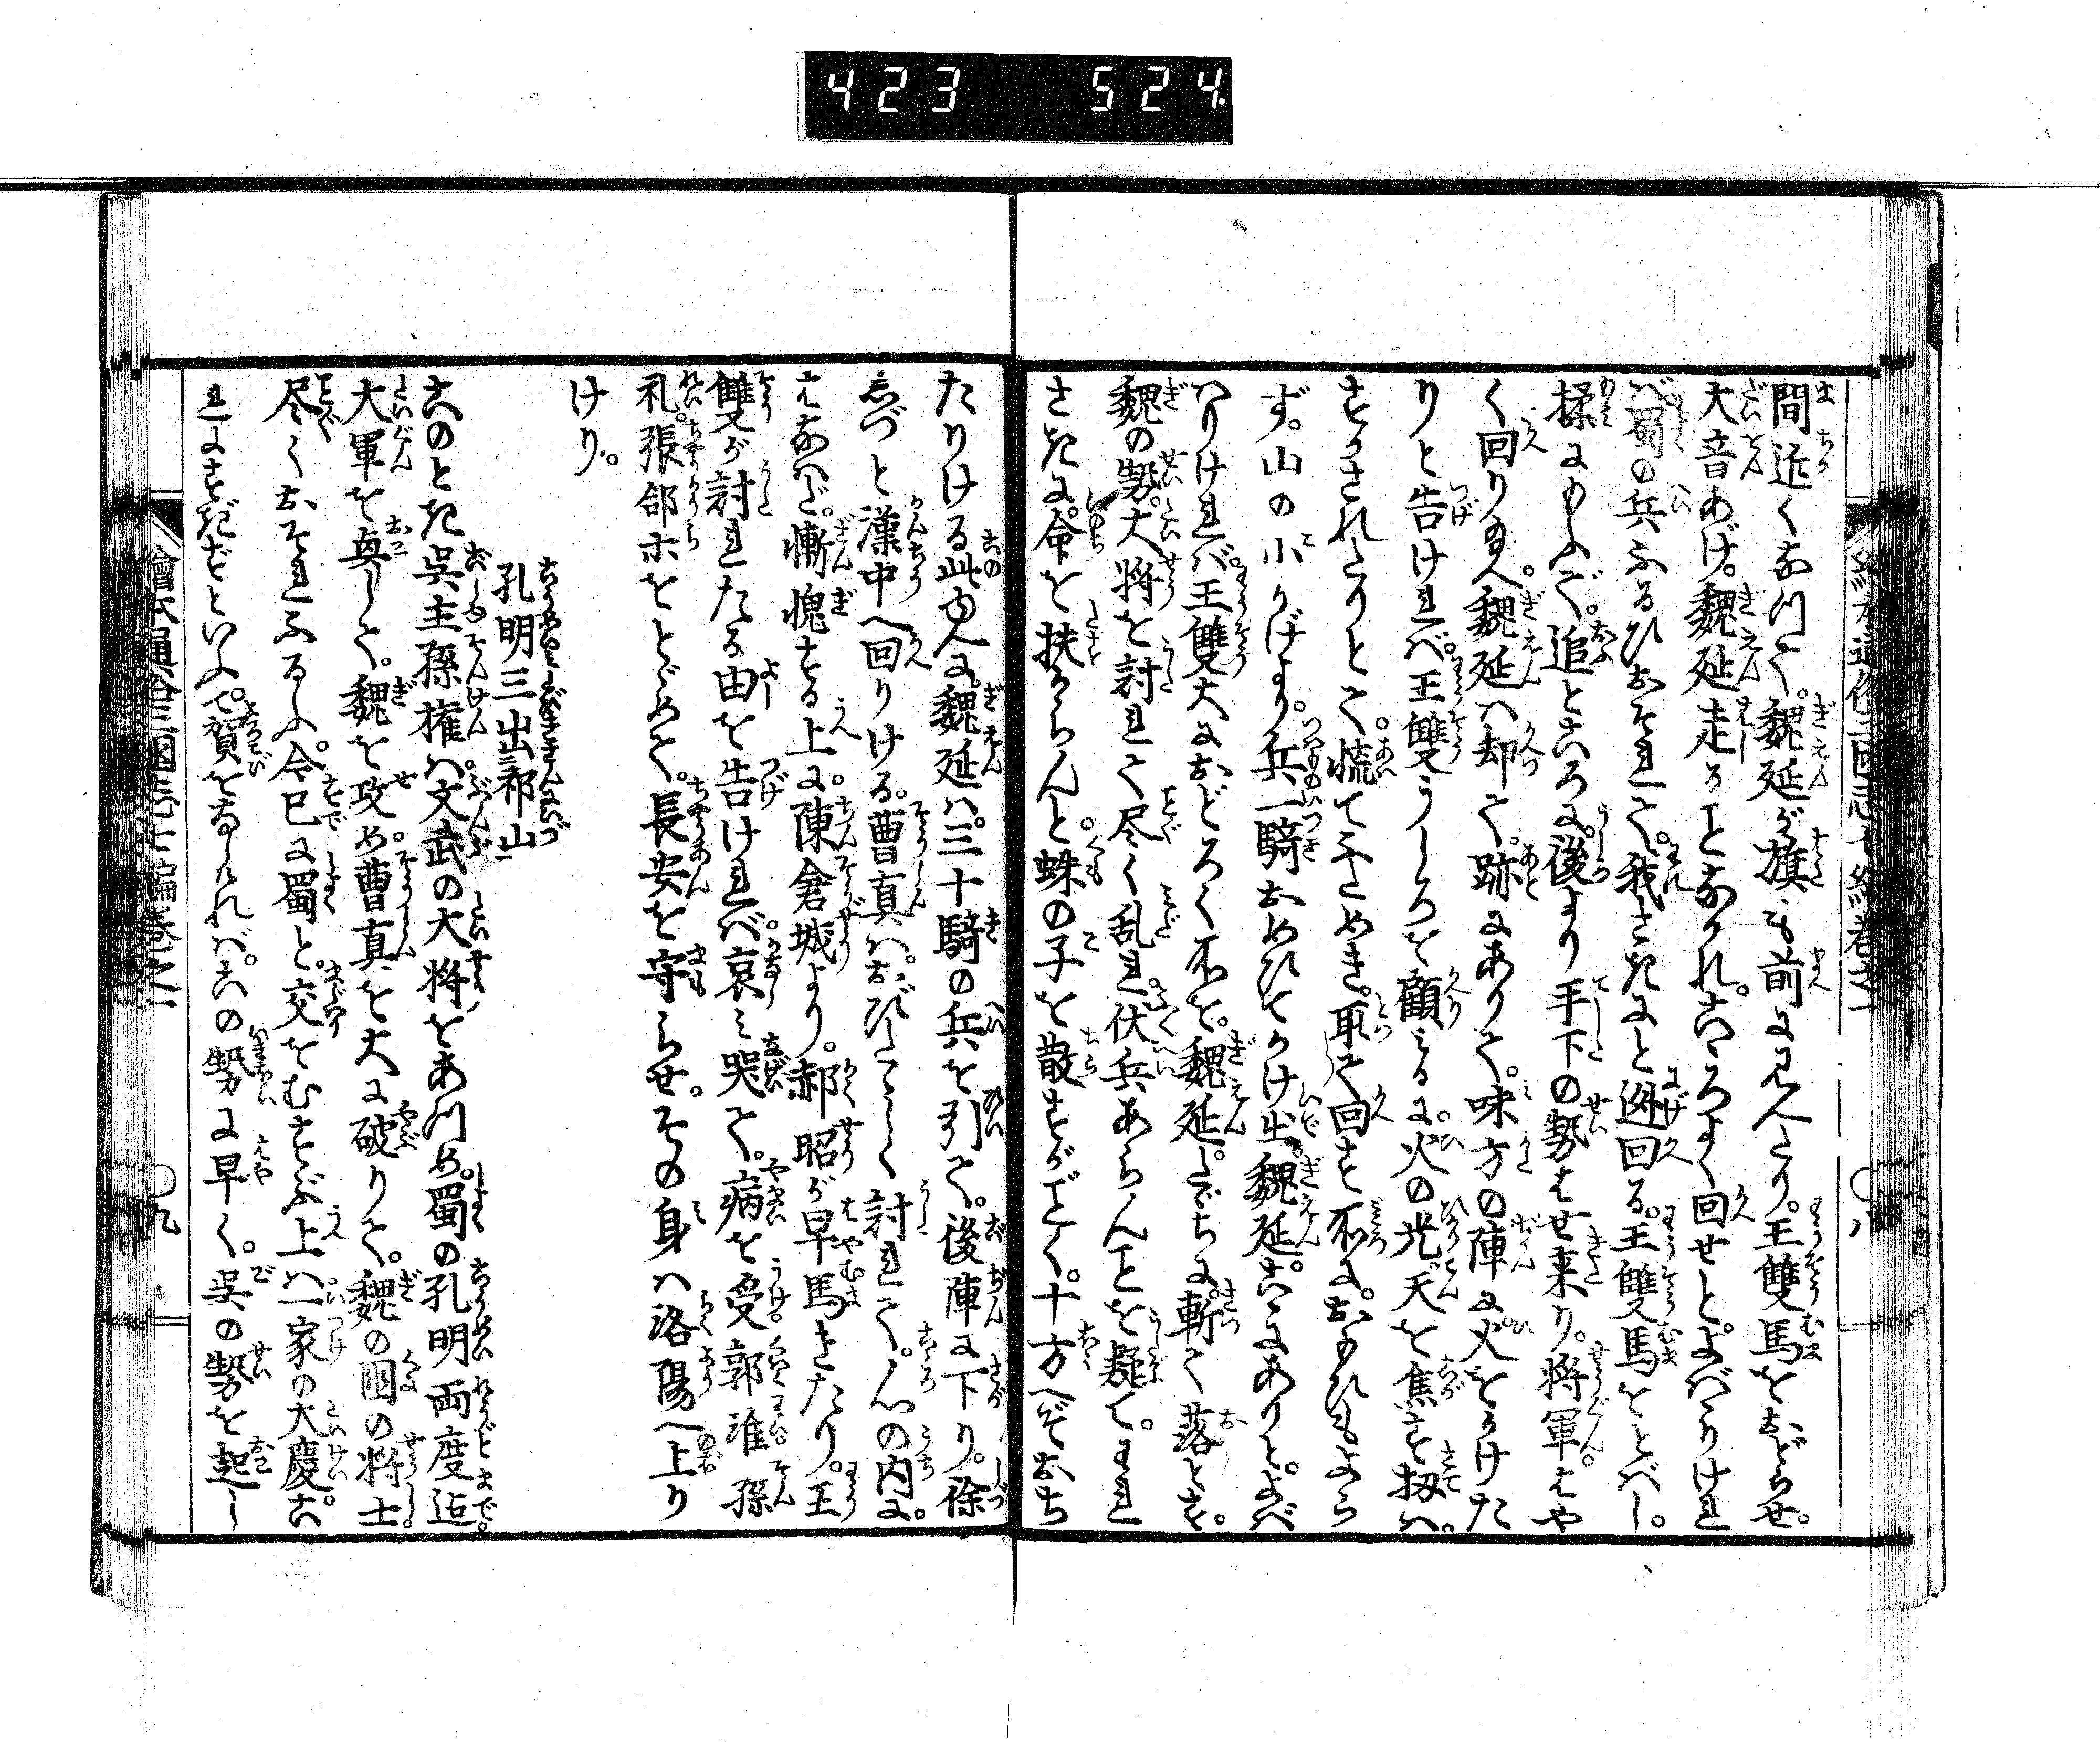 423 524
間近くなつて。魏延が旗も前に見へたり。王雙馬をおどらせ。
大音あげ。魏延走ることなかれ。こゝろよく回せと。よばゝりけれ
ば。蜀の兵ふるひおそれて。我さきにと迯回る。王雙馬をとばし。
揉にもんで。追ところに。後より手下の勢はせ来り。将軍。はや
く回り玉へ。魏延ハ却て。跡にありて。味方の陣に火をかけた
りと告ければ。王雙うしろを顧みるに。火の光。天を焦を扨ハ。
はかされたりとて。慌てふためき。取て回す所に。おもひもよら
ず。山の小かげより。兵一騎おめひてかけ出。魏延。こゝにありと。よば
ハりければ。王雙大におどろく所を。魏延。たゞちに。斬て落とす。
魏の勢。大将を討れて尽く乱れ。伏兵あらんことを疑て。われ
さきに。命を扶からんと。蛛の子を散すがごとく。十方へぞおち
たりける此ゆへに。魏延ハ。三十騎の兵を引て。後陣に下り。徐
しづと漢中へ回りける。曹真ハ。おびたゝしく討れて。心の内に。
はなハだ。慚愧する上に。陳倉城より。郝昭が早馬きたり。王
雙が討れたる由を告ければ。哀み哭て。病を受。郭淮孫
礼。張郃ホをとゞめて。長安を守らせ。その身ハ洛陽へ上り
けり。
孔明三出祁山
このとき呉主孫権ハ。文武の大将をあつめ。蜀の孔明両度迄。
大軍を興して。魏を攻め。曹真を大に破りて。魏の国の将士
尽くおそれふるふ。今已に蜀と。交をむすぶ上ハ。一家の大慶。こ
れにすぎずといふて。賀をなしければ。この勢に早く。呉の勢を起し
繪本通俗三国志七編巻之一 〇九